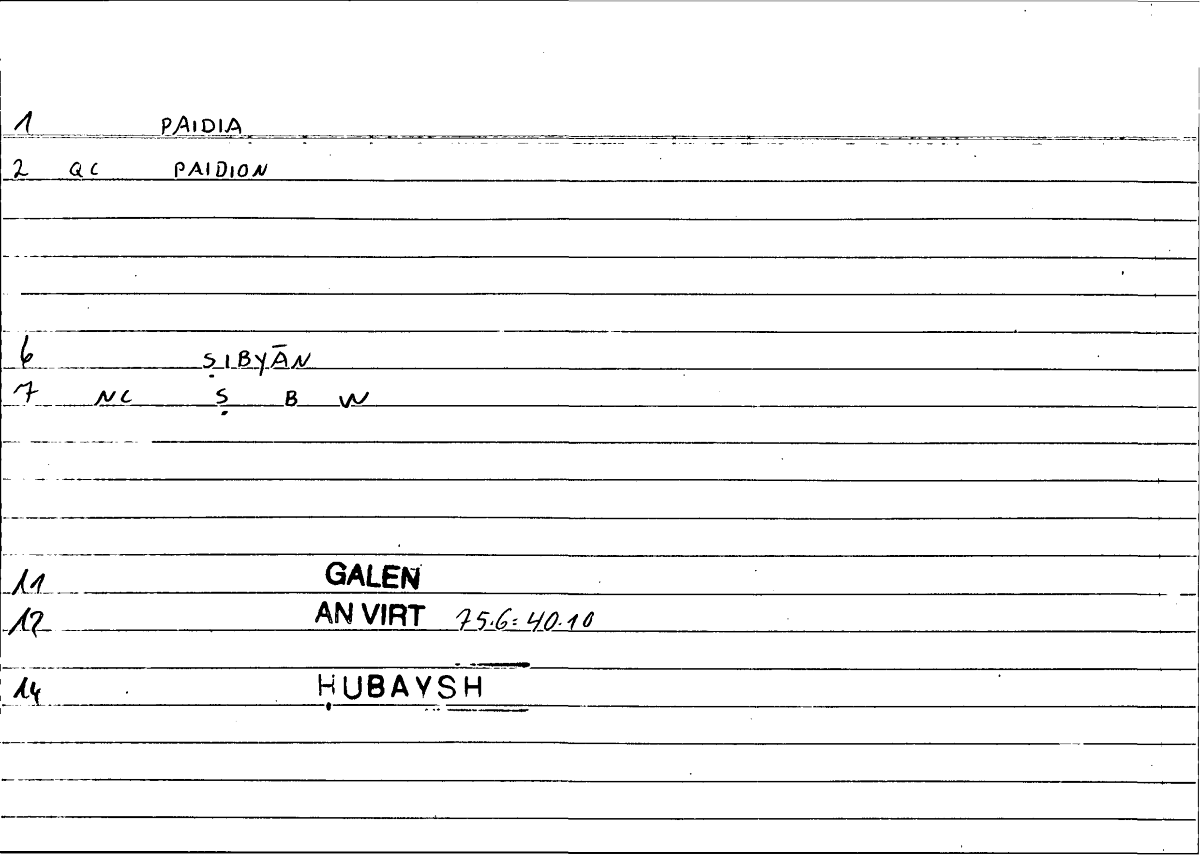 1 PAIDIA
2 QC PAIDION
6 ṢIBYĀN
7 NC Ṣ B W
11 GALEN
12 AN VIRT 75.6=40.10
14 ḤUBAYSH